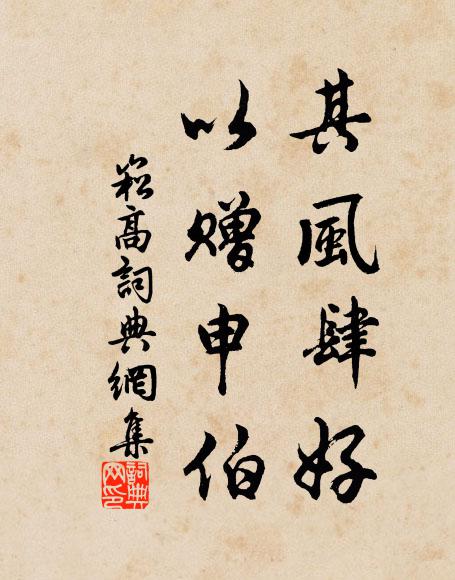 其風肆好
以贈申伯
崧高詞典網集
詞典
网印